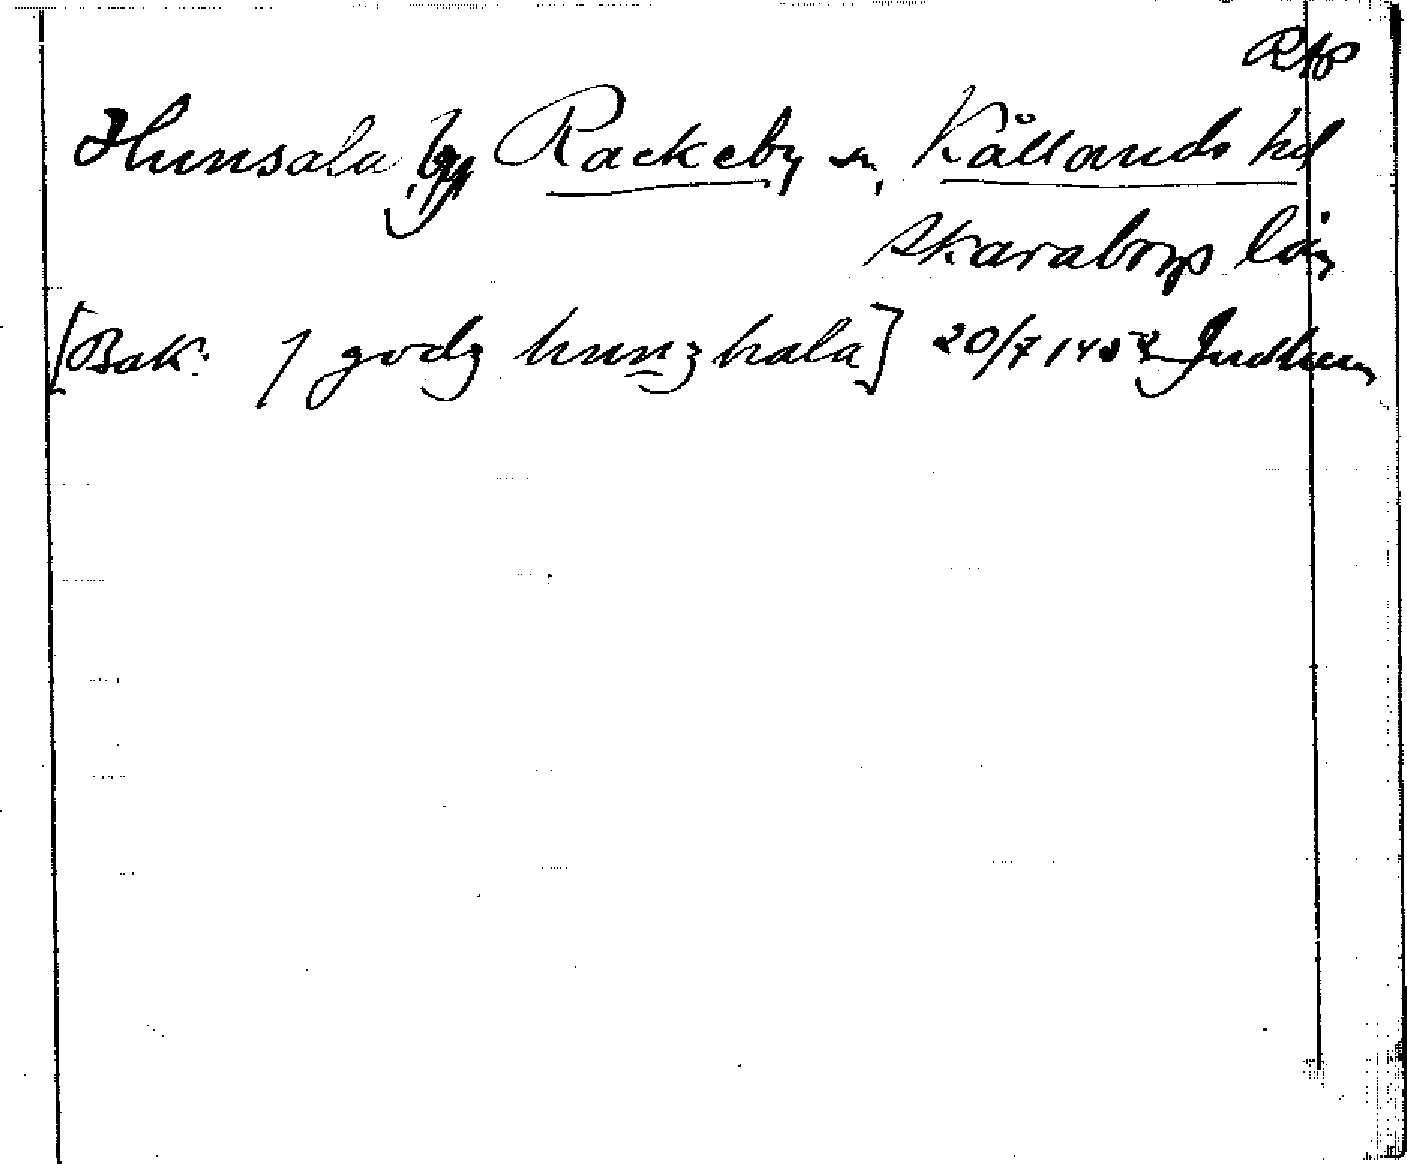 Rap
Hunsala by Rackeby sn, Kållands hd
Skaraborgs län
[Bak: J godz hunzhala] 20/7 1452